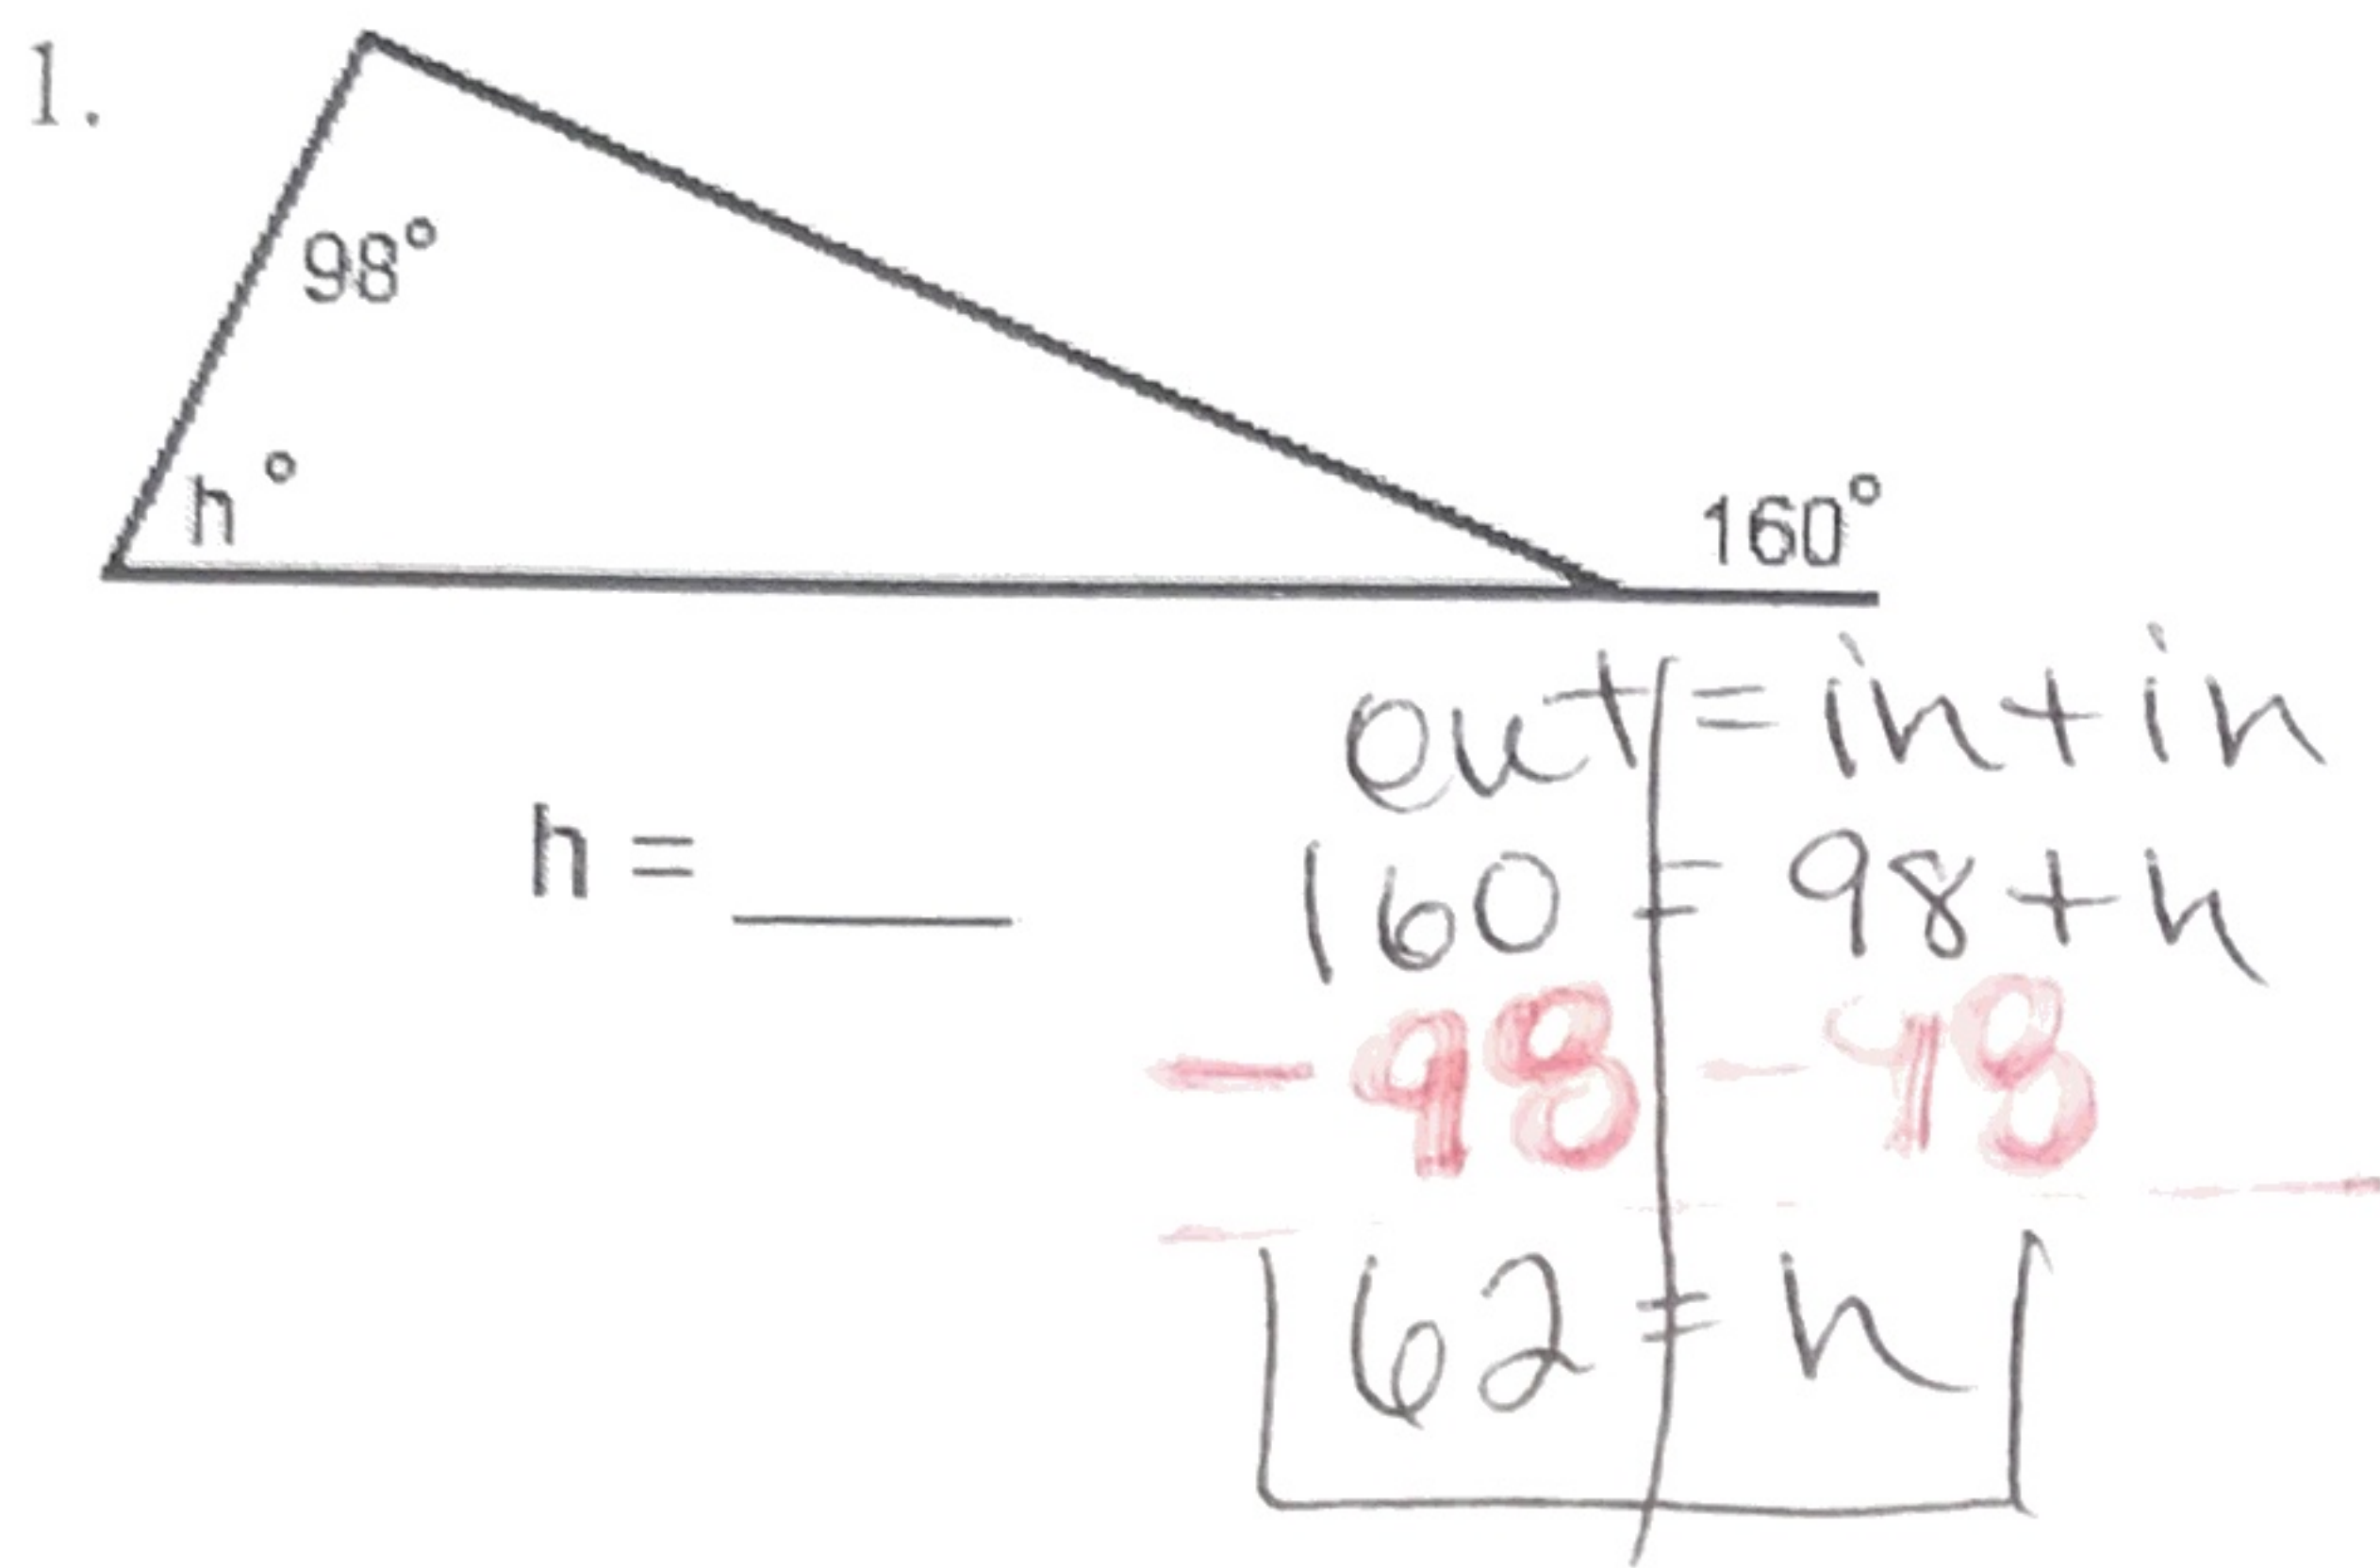 1.
98°
h°
160°
h = ____
out = in + in
160 = 98 + h
- 98 - 98
62 = h